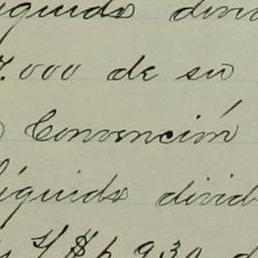 líquido divid
7.000 de su
Convención
líquido divid
s/ $ p 930 d